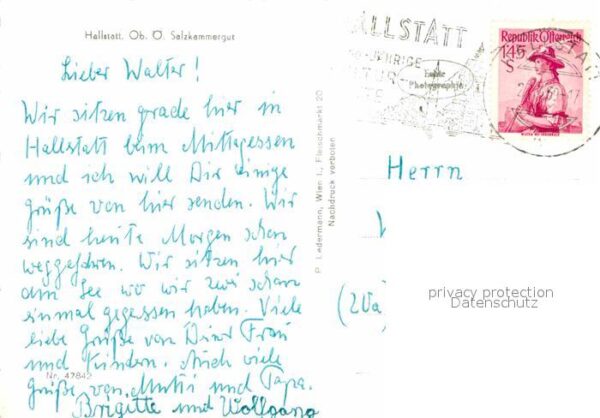 Hallstatt, Ob. Ö. Salzkammergut
Lieber Walter!
Wir sitzen grade hier in
Hallstatt beim Mittagessen
und ich will Dir einige
Grüße von hier senden. Wir
sind heute Morgen schon
weggefahren. Wir sitzen hier
am See wo wir zwei schon
einmal gegessen haben. Viele
liebe Grüße von Deiner Frau
und Kindern. Auch viele
Grüße von Mutti und Papa.
Brigitte und Wolfgang
Nr. 47842
P. Ledermann, Wien I., Fleischmarkt 20
Nachdruck verboten
HALLSTATT
JÄHRIGE
Echte
Photographie
Republik Österreich
145
S
Herrn
(Wa
privacy protection
Datenschutz